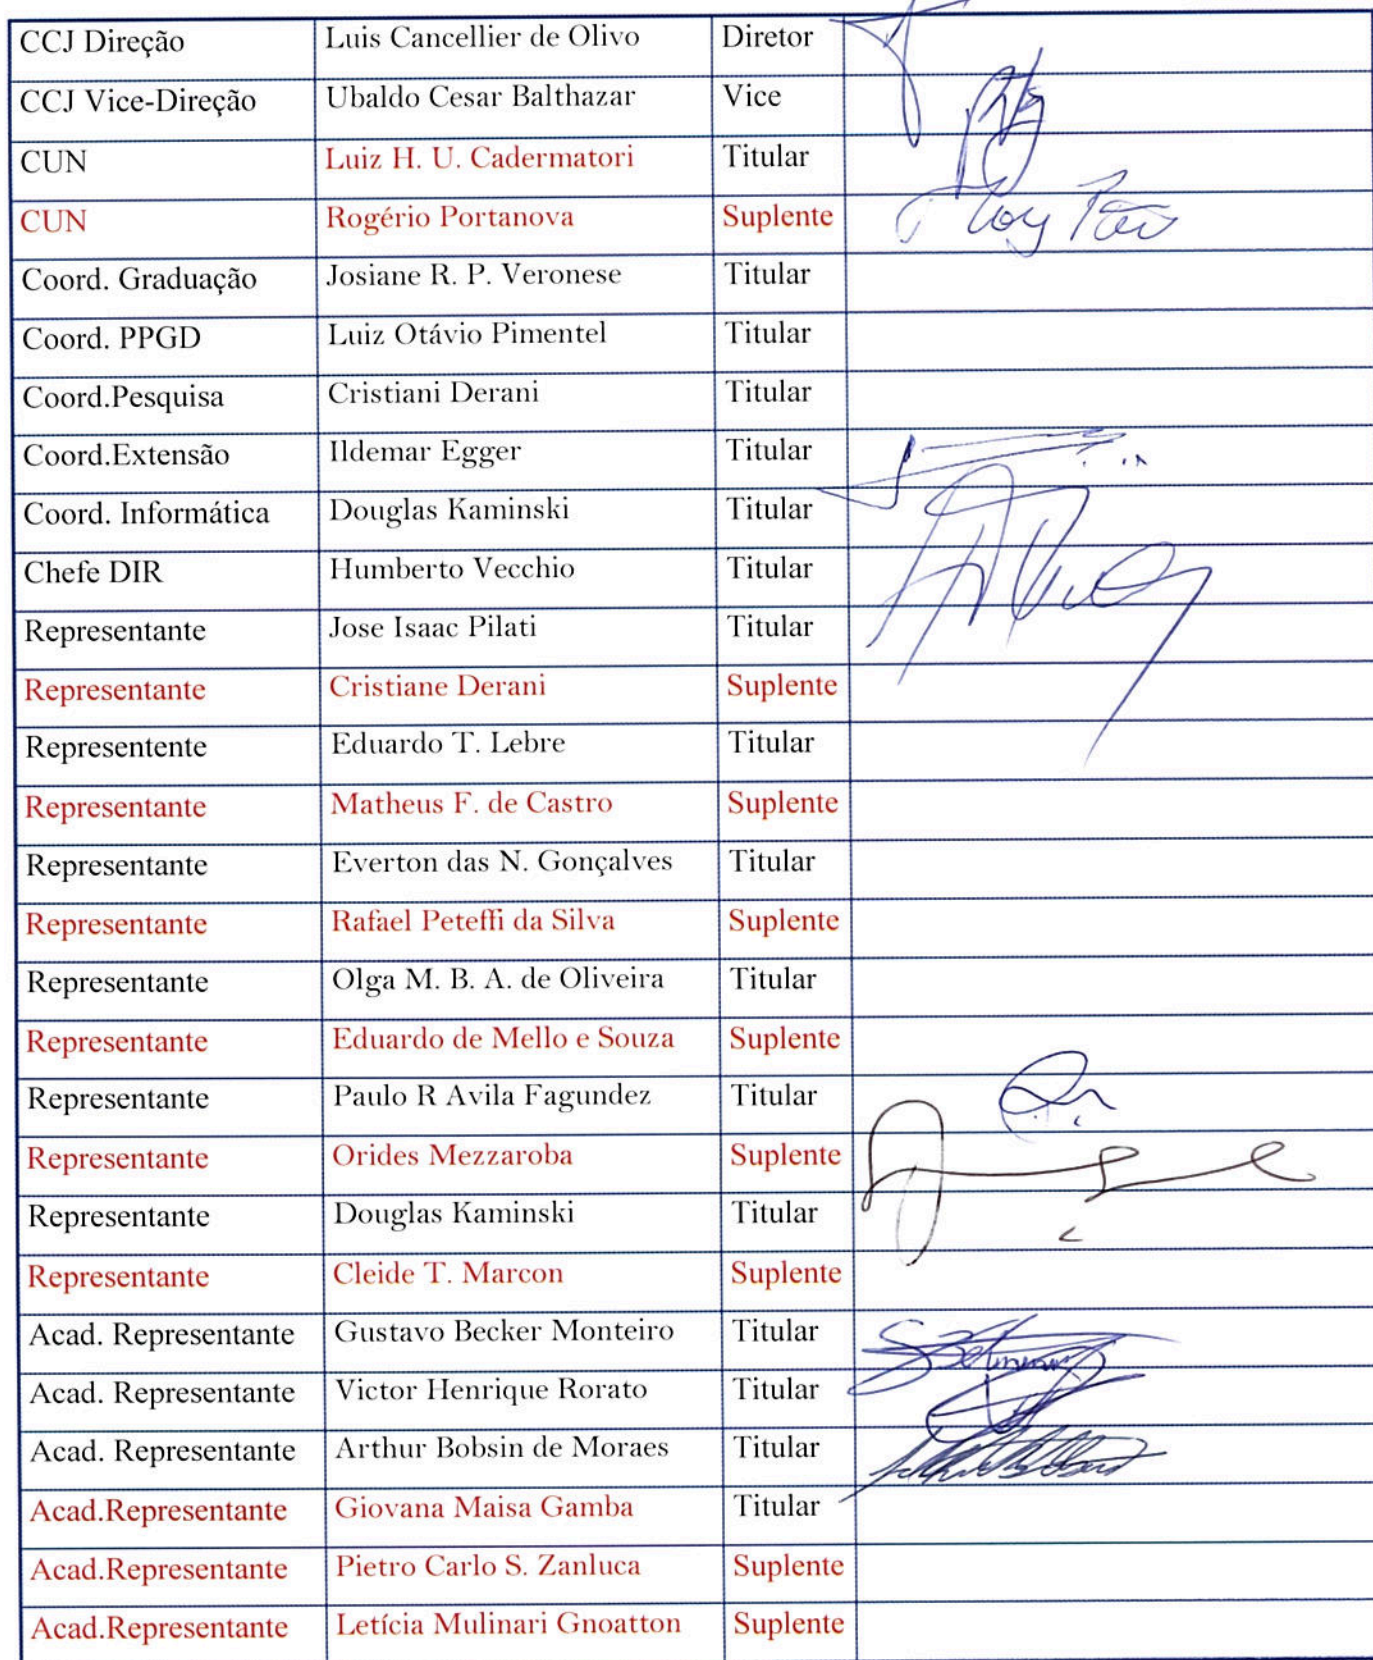 CCJ Direção Luis Cancellier de Olivo Diretor
CCJ Vice-Direção Ubaldo Cesar Balthazar Vice
CUN Luiz H. U. Cadermatori Titular
CUN Rogério Portanova Suplente
Coord. Graduação Josiane R. P. Veronese Titular
Coord. PPGD Luiz Otávio Pimentel Titular
Coord.Pesquisa Cristiani Derani Titular
Coord.Extensão Ildemar Egger Titular
Coord. Informática Douglas Kaminski Titular
Chefe DIR Humberto Vecchio Titular
Representante Jose Isaac Pilati Titular
Representante Cristiane Derani Suplente
Representente Eduardo T. Lebre Titular
Representante Matheus F. de Castro Suplente
Representante Everton das N. Gonçalves Titular
Representante Rafael Peteffi da Silva Suplente
Representante Olga M. B. A. de Oliveira Titular
Representante Eduardo de Mello e Souza Suplente
Representante Paulo R Avila Fagundez Titular
Representante Orides Mezzaroba Suplente
Representante Douglas Kaminski Titular
Representante Cleide T. Marcon Suplente
Acad. Representante Gustavo Becker Monteiro Titular
Acad. Representante Victor Henrique Rorato Titular
Acad. Representante Arthur Bobsin de Moraes Titular
Acad.Representante Giovana Maisa Gamba Titular
Acad.Representante Pietro Carlo S. Zanluca Suplente
Acad.Representante Letícia Mulinari Gnoatton Suplente